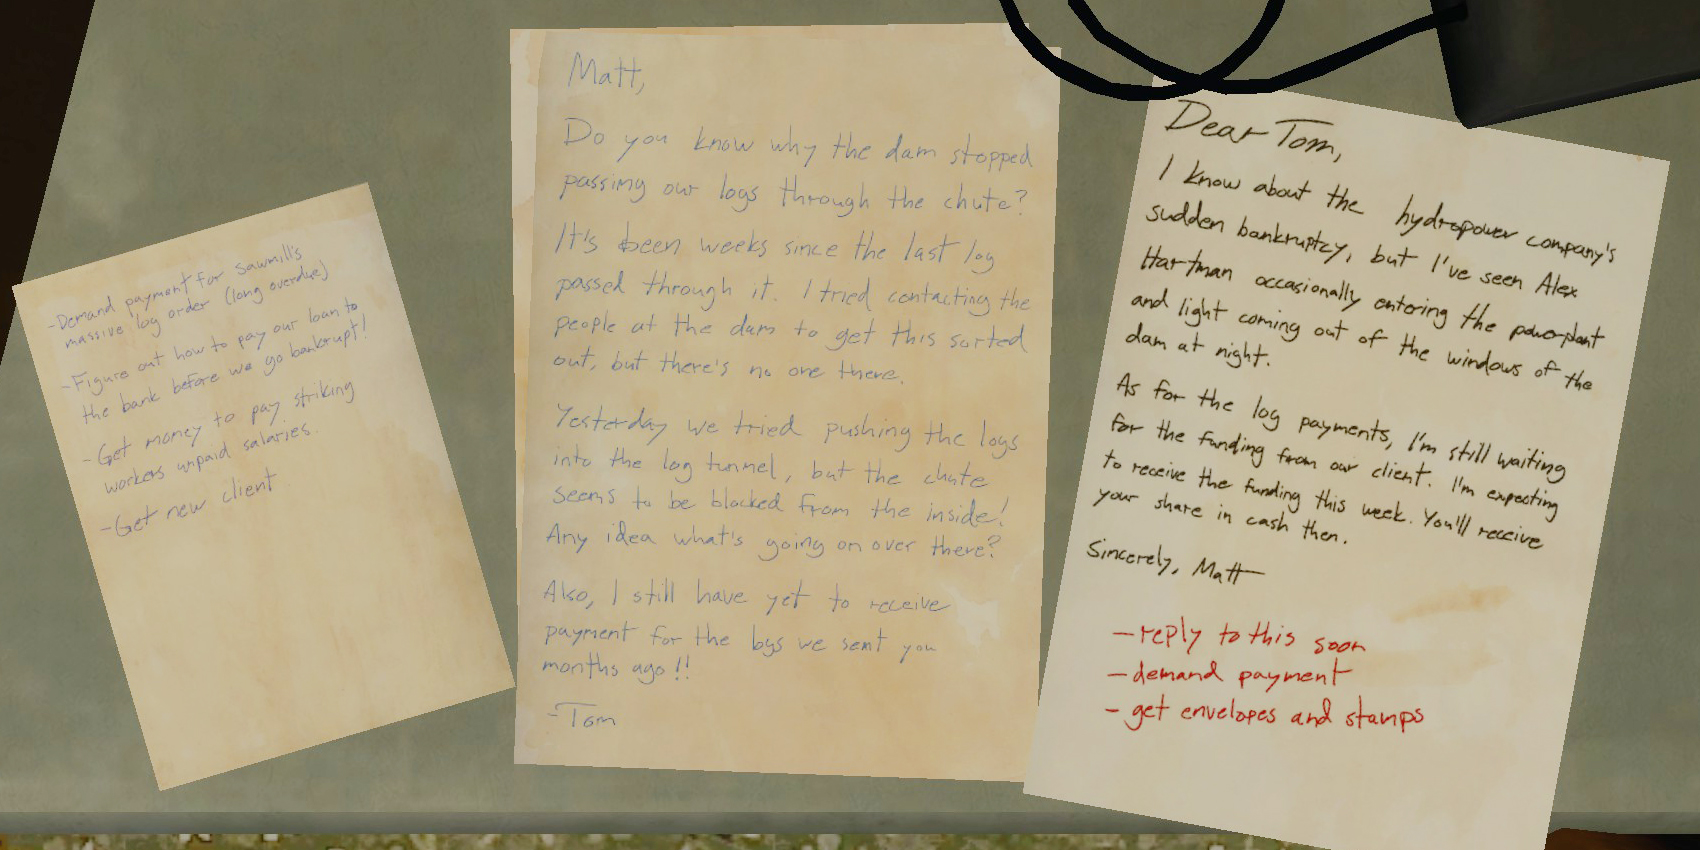 -Demand payment for sawmill's
massive log order (long overdue)
-Figure out how to pay our loan to
the bank before we go bankrupt!
-Get money to pay striking
workers unpaid salaries.
-Get new client
Matt,
Do you know why the dam stopped
passing our logs through the chute?
It's been weeks since the last log
passed through it. I tried contacting the
people at the dam to get this sorted
out, but there's no one there.
Yesterday we tried pushing the logs
into the log tunnel, but the chute
seems to be blocked from the inside!
Any idea what's going on over there?
Also, I still have yet to receive
payment for the logs we sent you
months ago!!
-Tom
Dear Tom,
I know about the hydropower company's
sudden bankruptcy, but I've seen Alex
Hartman occasionally entering the powerplant
and light coming out of the windows of the
dam at night.
As for the log payments, I'm still waiting
for the funding from our client. I'm expecting
to receive the funding this week. You'll receive
your share in cash then.
Sincerely, Matt
-reply to this soon
-demand payment
-get envelopes and stamps